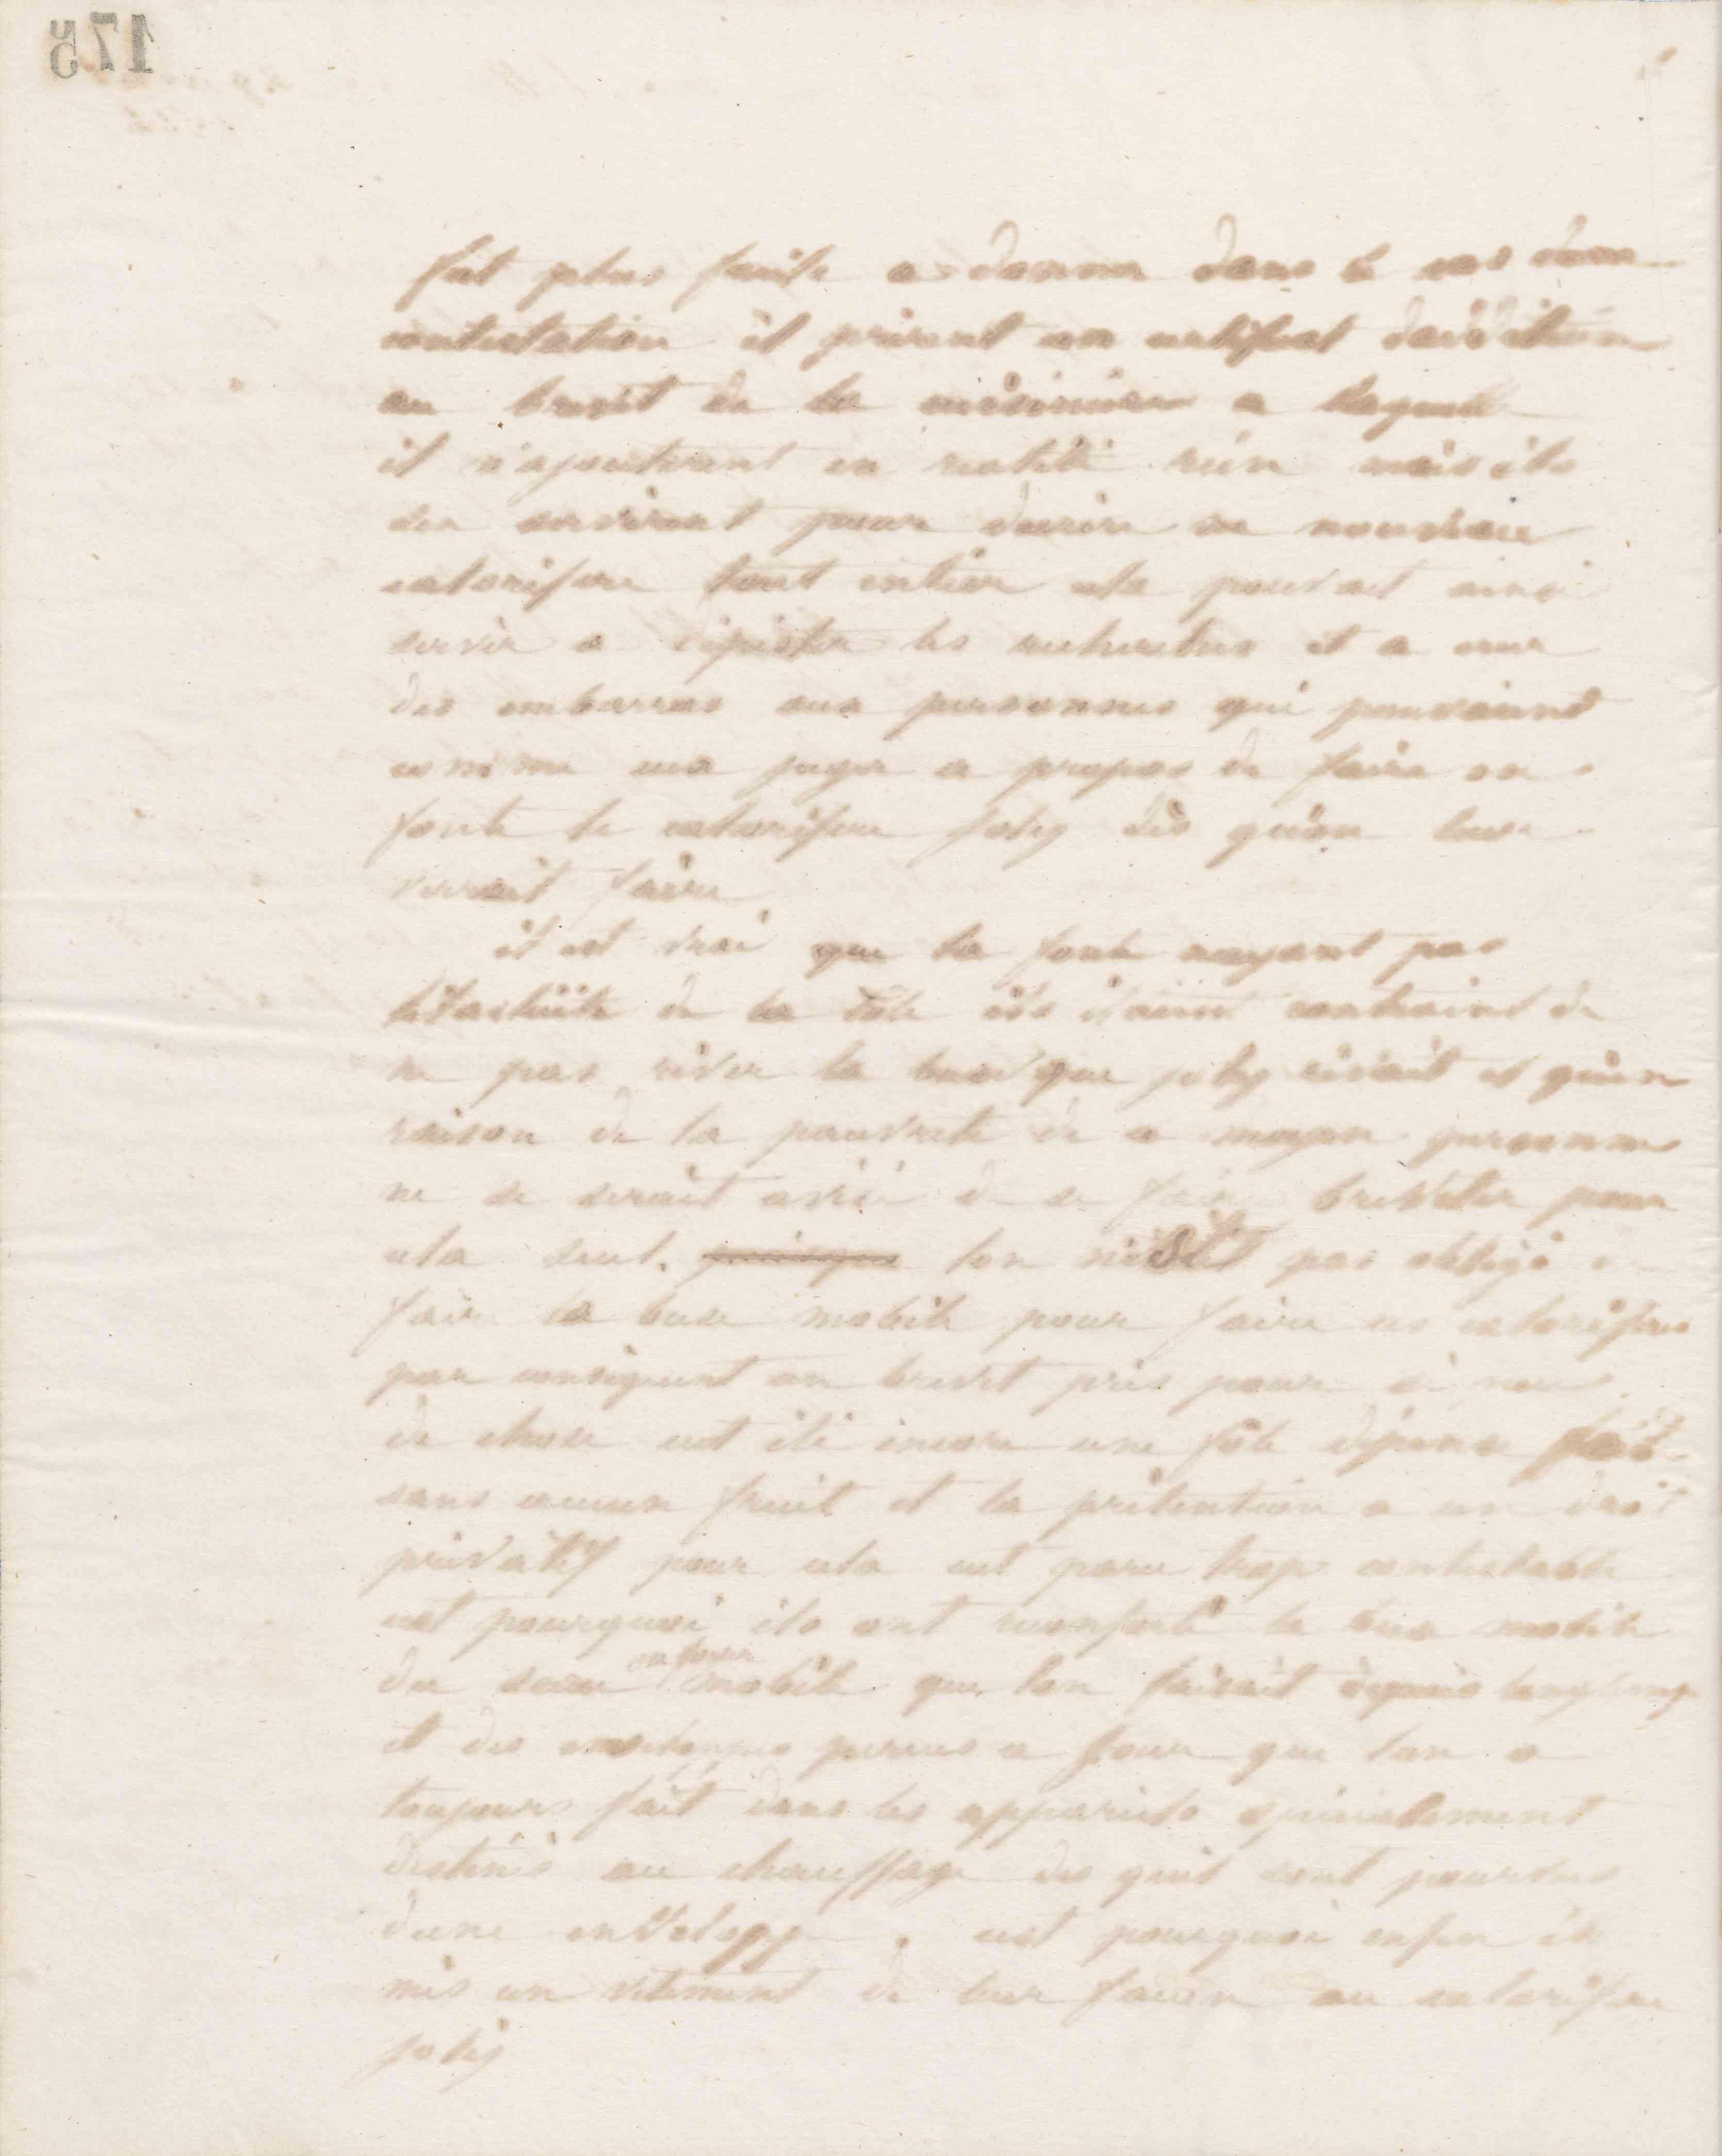 175
fut plus facile a donner dans le cas d'une
contestation il prirent un certificat d'addition
au brevet de la cuisinière a laquelle
il n'ajoutèrent en realité rien mais ils
sen servirent pour decrire un nouveau
calorifere tout entier cela pouvait ainsi
servir a dépister les recherches et a creer
des embarras aux personnes qui pouvaient
comme eux juger a propos de faire en
fonte le calorifere joly dès qu'on leur
verrait faire
il est vrai que la fonte nayant pas
lélasticité de la tôle ils étaient contraint de
ne pas river la buse que joly rivait et qu'en
raison de la pauvreté de ce moyen personne
ne se serait avisé de se faire breveter pour
cela seul. puisque lon n'était pas obligé de
faire la buse mobile pour faire ces caloriferes
par consequent un brevet pris pour si peu
de chose eut été encore une fôle dépense
sans aucun fruit et la prétention a un droit
privatif pour cela eut paru trop contestable
cest pourquoi ils ont reconforté la buse mobile
du seau ou foyer mobile que lon faisait depuis longtemps
et des enveloppes percees a jour que lon a
toujours fait dans les appareils spécialement
destinés au chauffage des quil sont pourvus
dune enveloppe . cest pourquoi enfin ils
mis un vêtement de leur facon au calorifere
joly